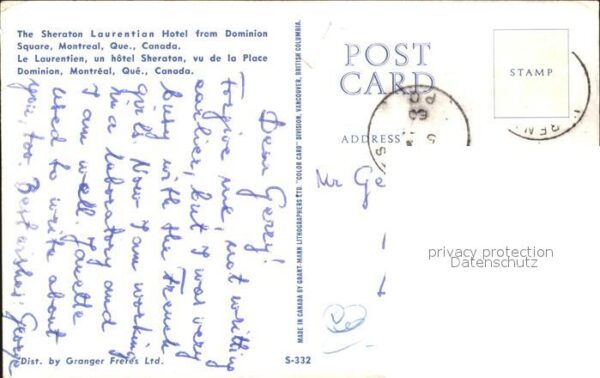 The Sheraton Laurentian Hotel from Dominion
Square, Montreal, Que., Canada.
Le Laurentien, un hôtel Sheraton, vu de la Place
Dominion, Montréal, Qué., Canada.
Dear Gerry!
Forgive me, not writting
earlier, but I was very
busy with the French
girl. Now I am working
in a laboratory and
I am well. Janette
used to write about
you, too Best wishes: George
Dist. by Granger Freres Ltd.
S-332
MADE IN CANADA BY GRANT-MANN LITHOGRAPHERS LTD. "COLOR CARD" DIVISION, VANCOUVER, BRITISH COLUMBIA.
POST
CARD
ADDRESS
STAMP
Mr Ge
privacy protection
Datenschutz